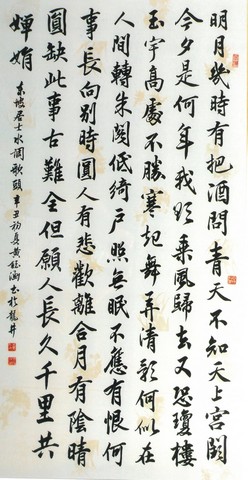 明月幾時有把酒問青天不知天上宮闕
今夕是何年我欲乘風歸去又恐瓊樓
玉宇高處不勝寒起舞弄清影何似在
人間轉朱閣低綺戶照無眠不應有恨何
事長向別時圓人有悲歡離合月有陰晴
圓缺此事古難全但願人長久千里共
嬋娟
東坡居士水調歌頭辛丑初夏黃鈺涵書於龍井